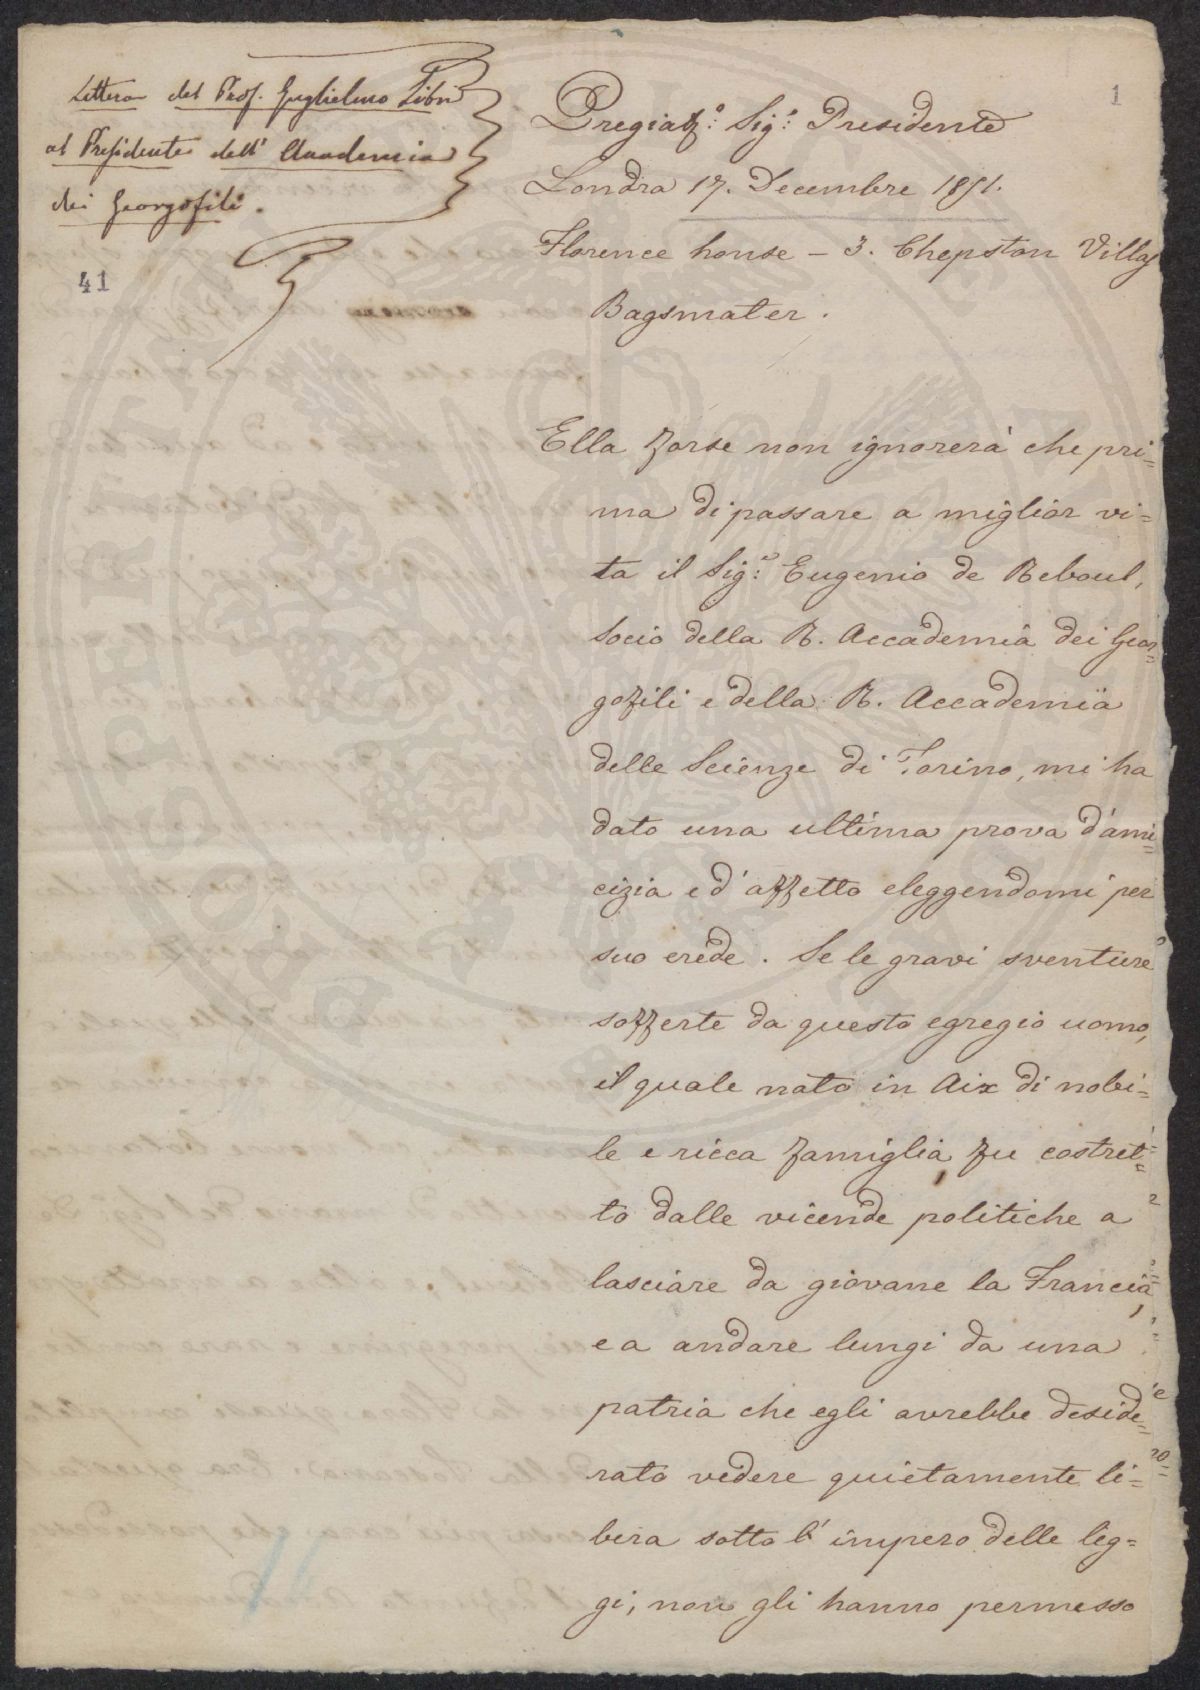 Lettera del Prof. Guglielmo Libri
al Presidente dell' Accademia
dei Georgofili.
41
1
Pregiat.º Sig.º Presidente
Londra 17. Decembre 1851.
Florence house – 3. Chepston Villas
Bagsmater.
Ella forse non ignorerà che pri=
ma di passare a miglior vi=
ta il Sig.r Eugenio de Reboul,
Socio della R. Accademia dei Geor=
gofili e della R. Accademia
delle Scienze di Torino, mi ha
dato una ultima prova d'ami=
cizia e d'affetto eleggendomi per
suo erede. Se le gravi sventure
sofferte da questo egregio uomo,
il quale nato in Aix di nobi=
le e ricca famiglia, fu costret=
to dalle vicende politiche a
lasciare da giovane la Francia,
e a andare lungi da una
patria che egli avrebbe deside=
rato vedere quietamente li=
bera sotto l'impero delle leg=
gi, non gli hanno permesso